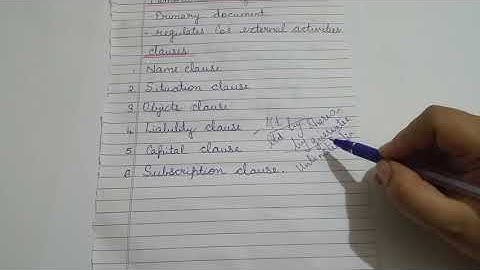 Primary document
- regulates Cos external activities
clauses
1 Name clause
2 Situation clause
3 Objects clause
4 Liability clause - Ltd
Ltd by shares
by guarantee
5 Capital clause
6 Subscription clause.